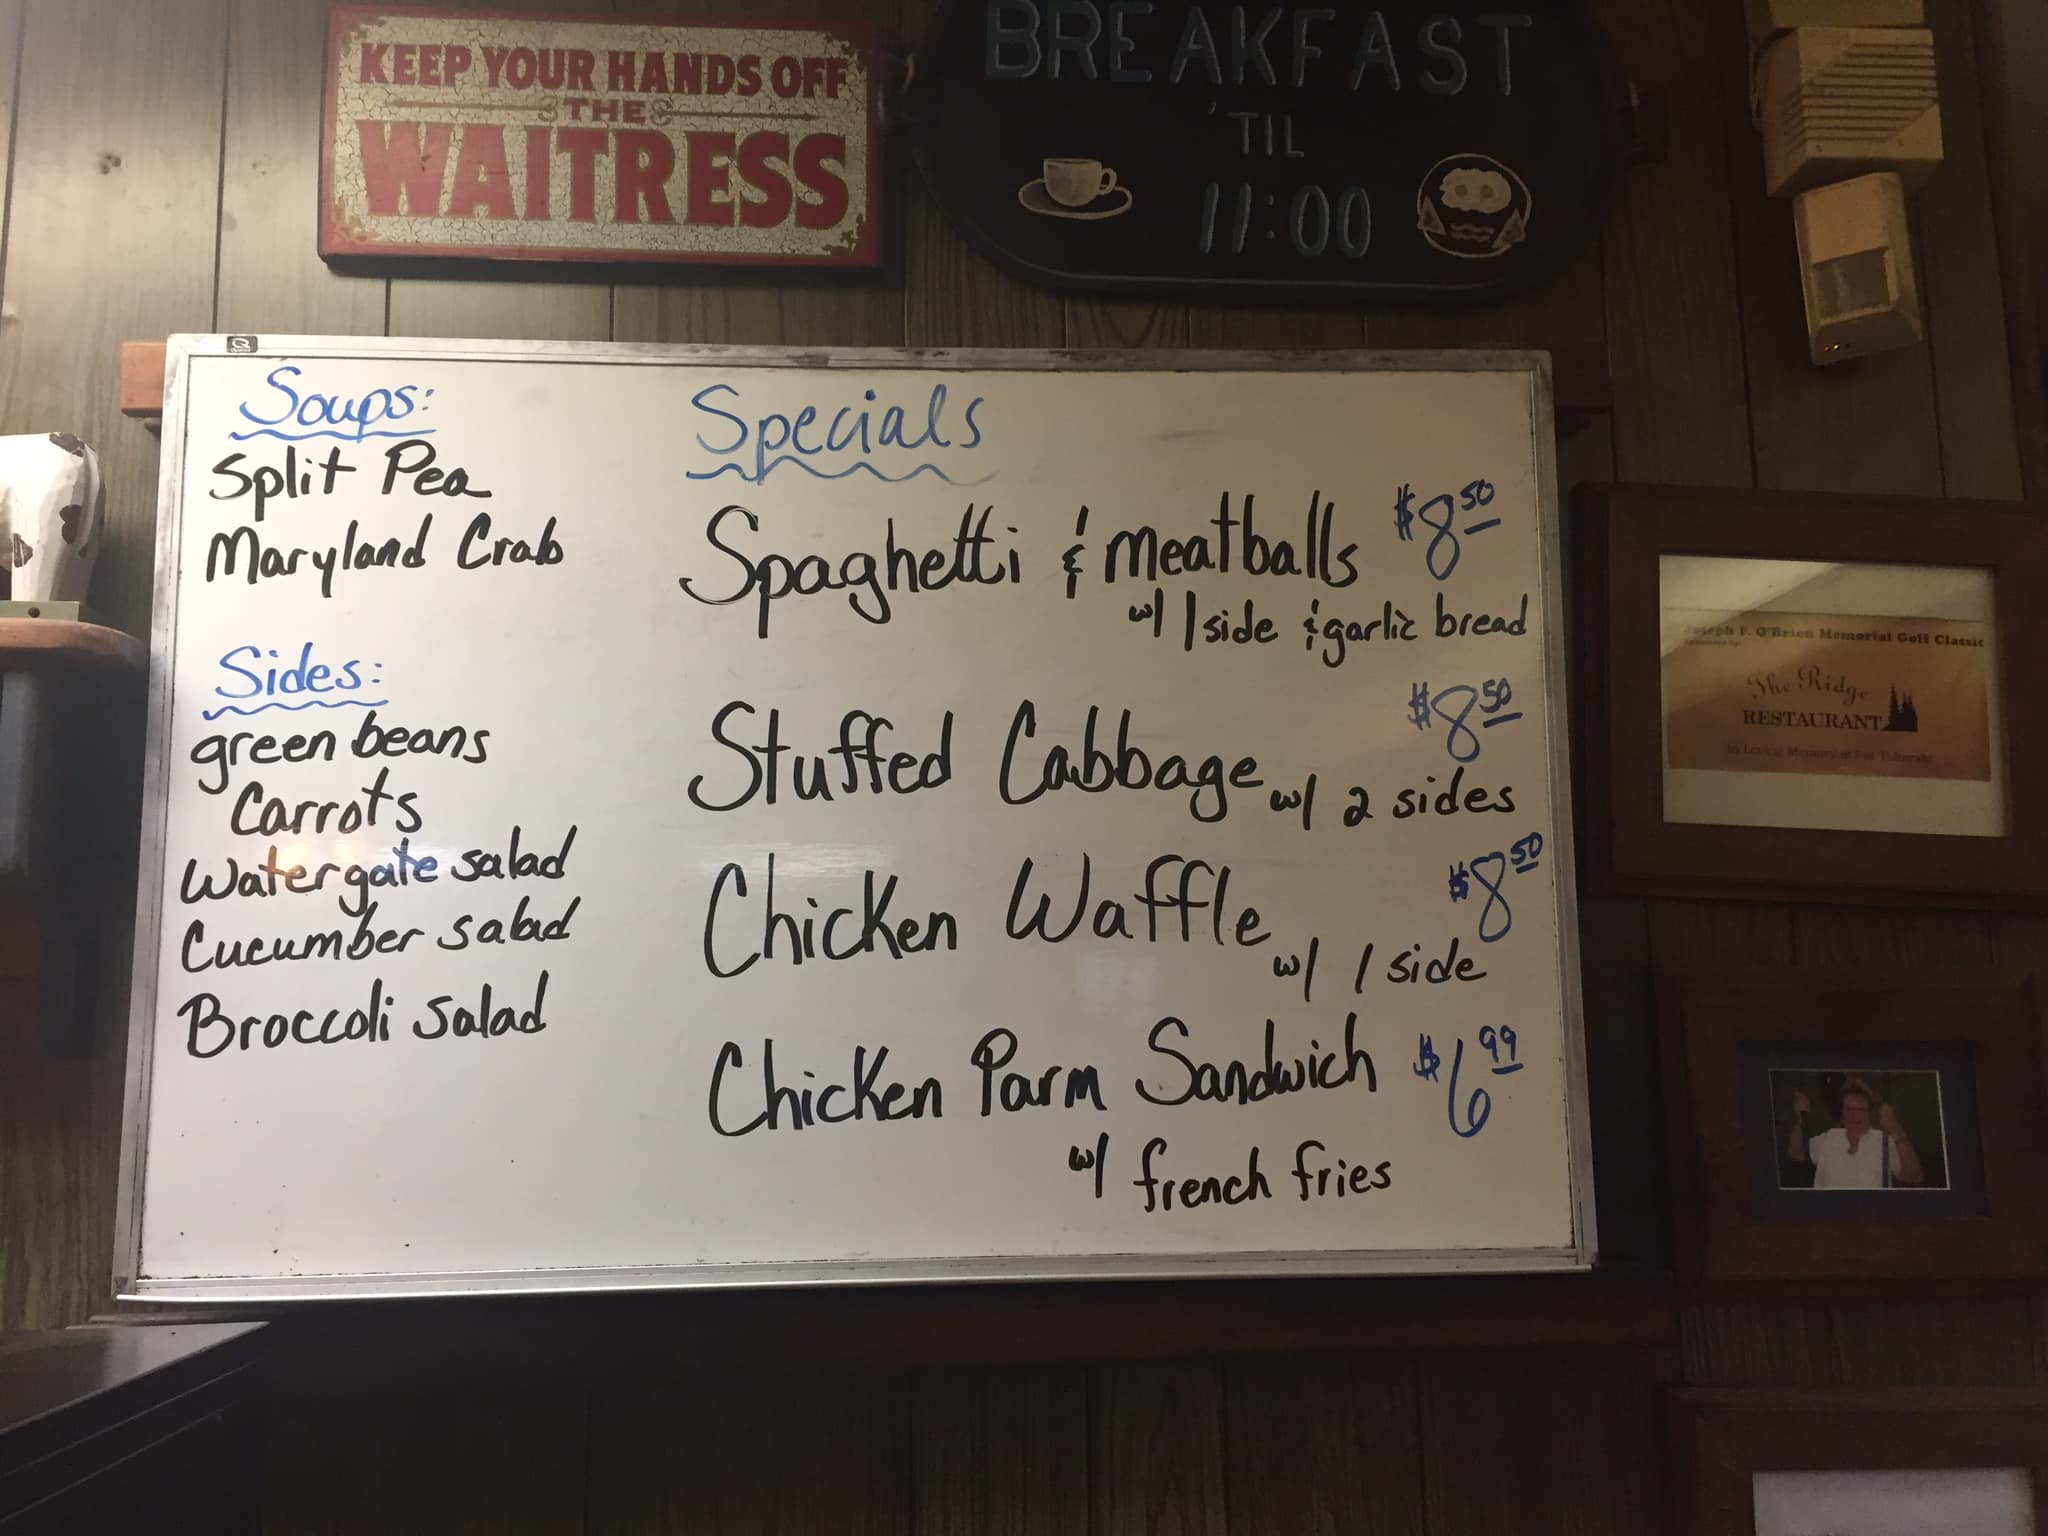 KEEP YOUR HANDS OFF
THE
WAITRESS
BREAKFAST
'TIL
11:00
Soups:
Split Pea
Maryland Crab
Sides:
green beans
Carrots
Watergate salad
Cucumber salad
Broccoli salad
Specials
Spaghetti & meatballs $8.50
w/ 1 side & garlic bread
Stuffed Cabbage $8.50
w/ 2 sides
Chicken Waffle $8.50
w/ 1 side
Chicken Parm Sandwich $6.99
w/ french fries
Joseph F. O'Brien Memorial Golf Classic
The Ridge
RESTAURANT
In Loving Memory of Pat